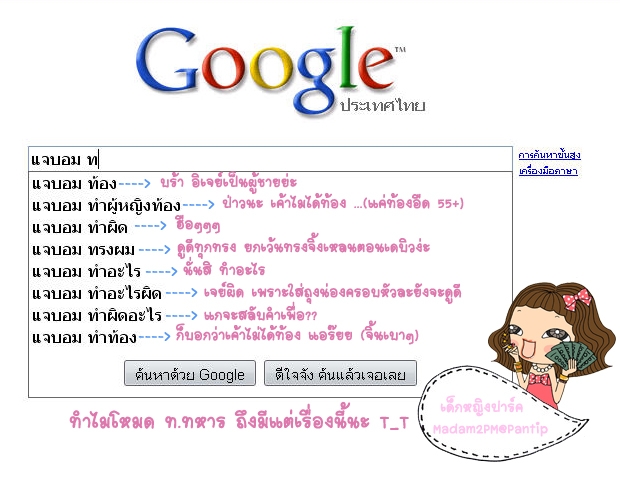 Google™
ประเทศไทย
แจบอม ท
การค้นหาขั้นสูง
เครื่องมือภาษา
แจบอม ท้อง----> บร้า อิเจย์เป็นผู้ชายย่ะ
แจบอม ทำผู้หญิงท้อง----> ป่าวนะ เค้าไม่ได้ท้อง ...(แค่ท้องอืด 55+)
แจบอม ทำผิด ----> ฮือๆๆๆ
แจบอม ทรงผม----> ดูดีทุกทรง ยกเว้นทรงจิ้งเหลนตอนเดบิวง่ะ
แจบอม ทำอะไร ----> นั่นสิ ทำอะไร
แจบอม ทำอะไรผิด ----> เจย์ผิด เพราะใส่ถุงน่องครอบหัวละยังจะดูดี
แจบอม ทำผิดอะไร ----> แกจะสลับคำเพื่อ??
แจบอม ทำท้อง----> ก็บอกว่าเค้าไม่ได้ท้อง แอร๊ยย (จิ้นเบาๆ)
ค้นหาด้วย Google
ดีใจจัง ค้นแล้วเจอเลย
ทำไมโหมด ท.ทหาร ถึงมีแต่เรื่องนี้นะ T_T
เด็กหญิงปาร์ค
Madam2PM@Pantip